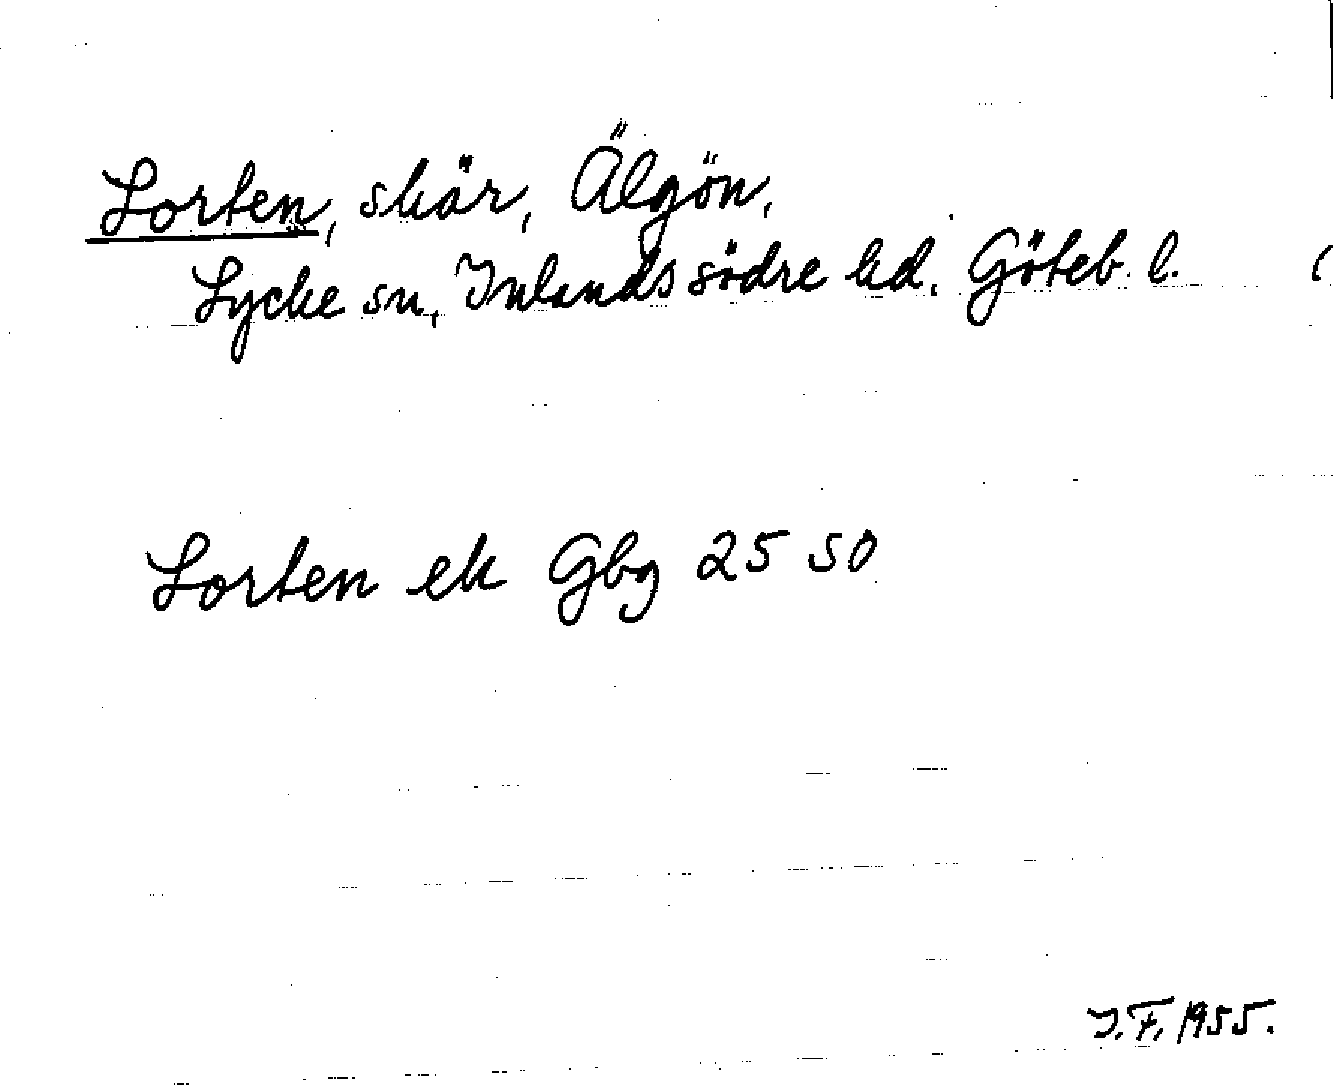 Lorten, skär, Älgön,
Lycke sn, Inlands södre hd. Göteb. l.
Lorten ek Gbg 25 SO
I.F. 1955.